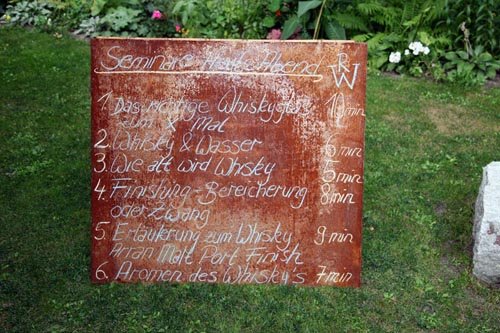 Seminare Heute Abend RW
1. Das richtige Whiskyglas 10 min
zum X Mal
2. Whisky & Wasser 6 min
3. Wie alt wird Whisky 5 min
4. Finishing-Bereicherung 8 min
oder Zwang
5. Erläuterung zum Whisky 9 min
Arran Malt Port Finish
6. Aromen des Whisky's 7 min